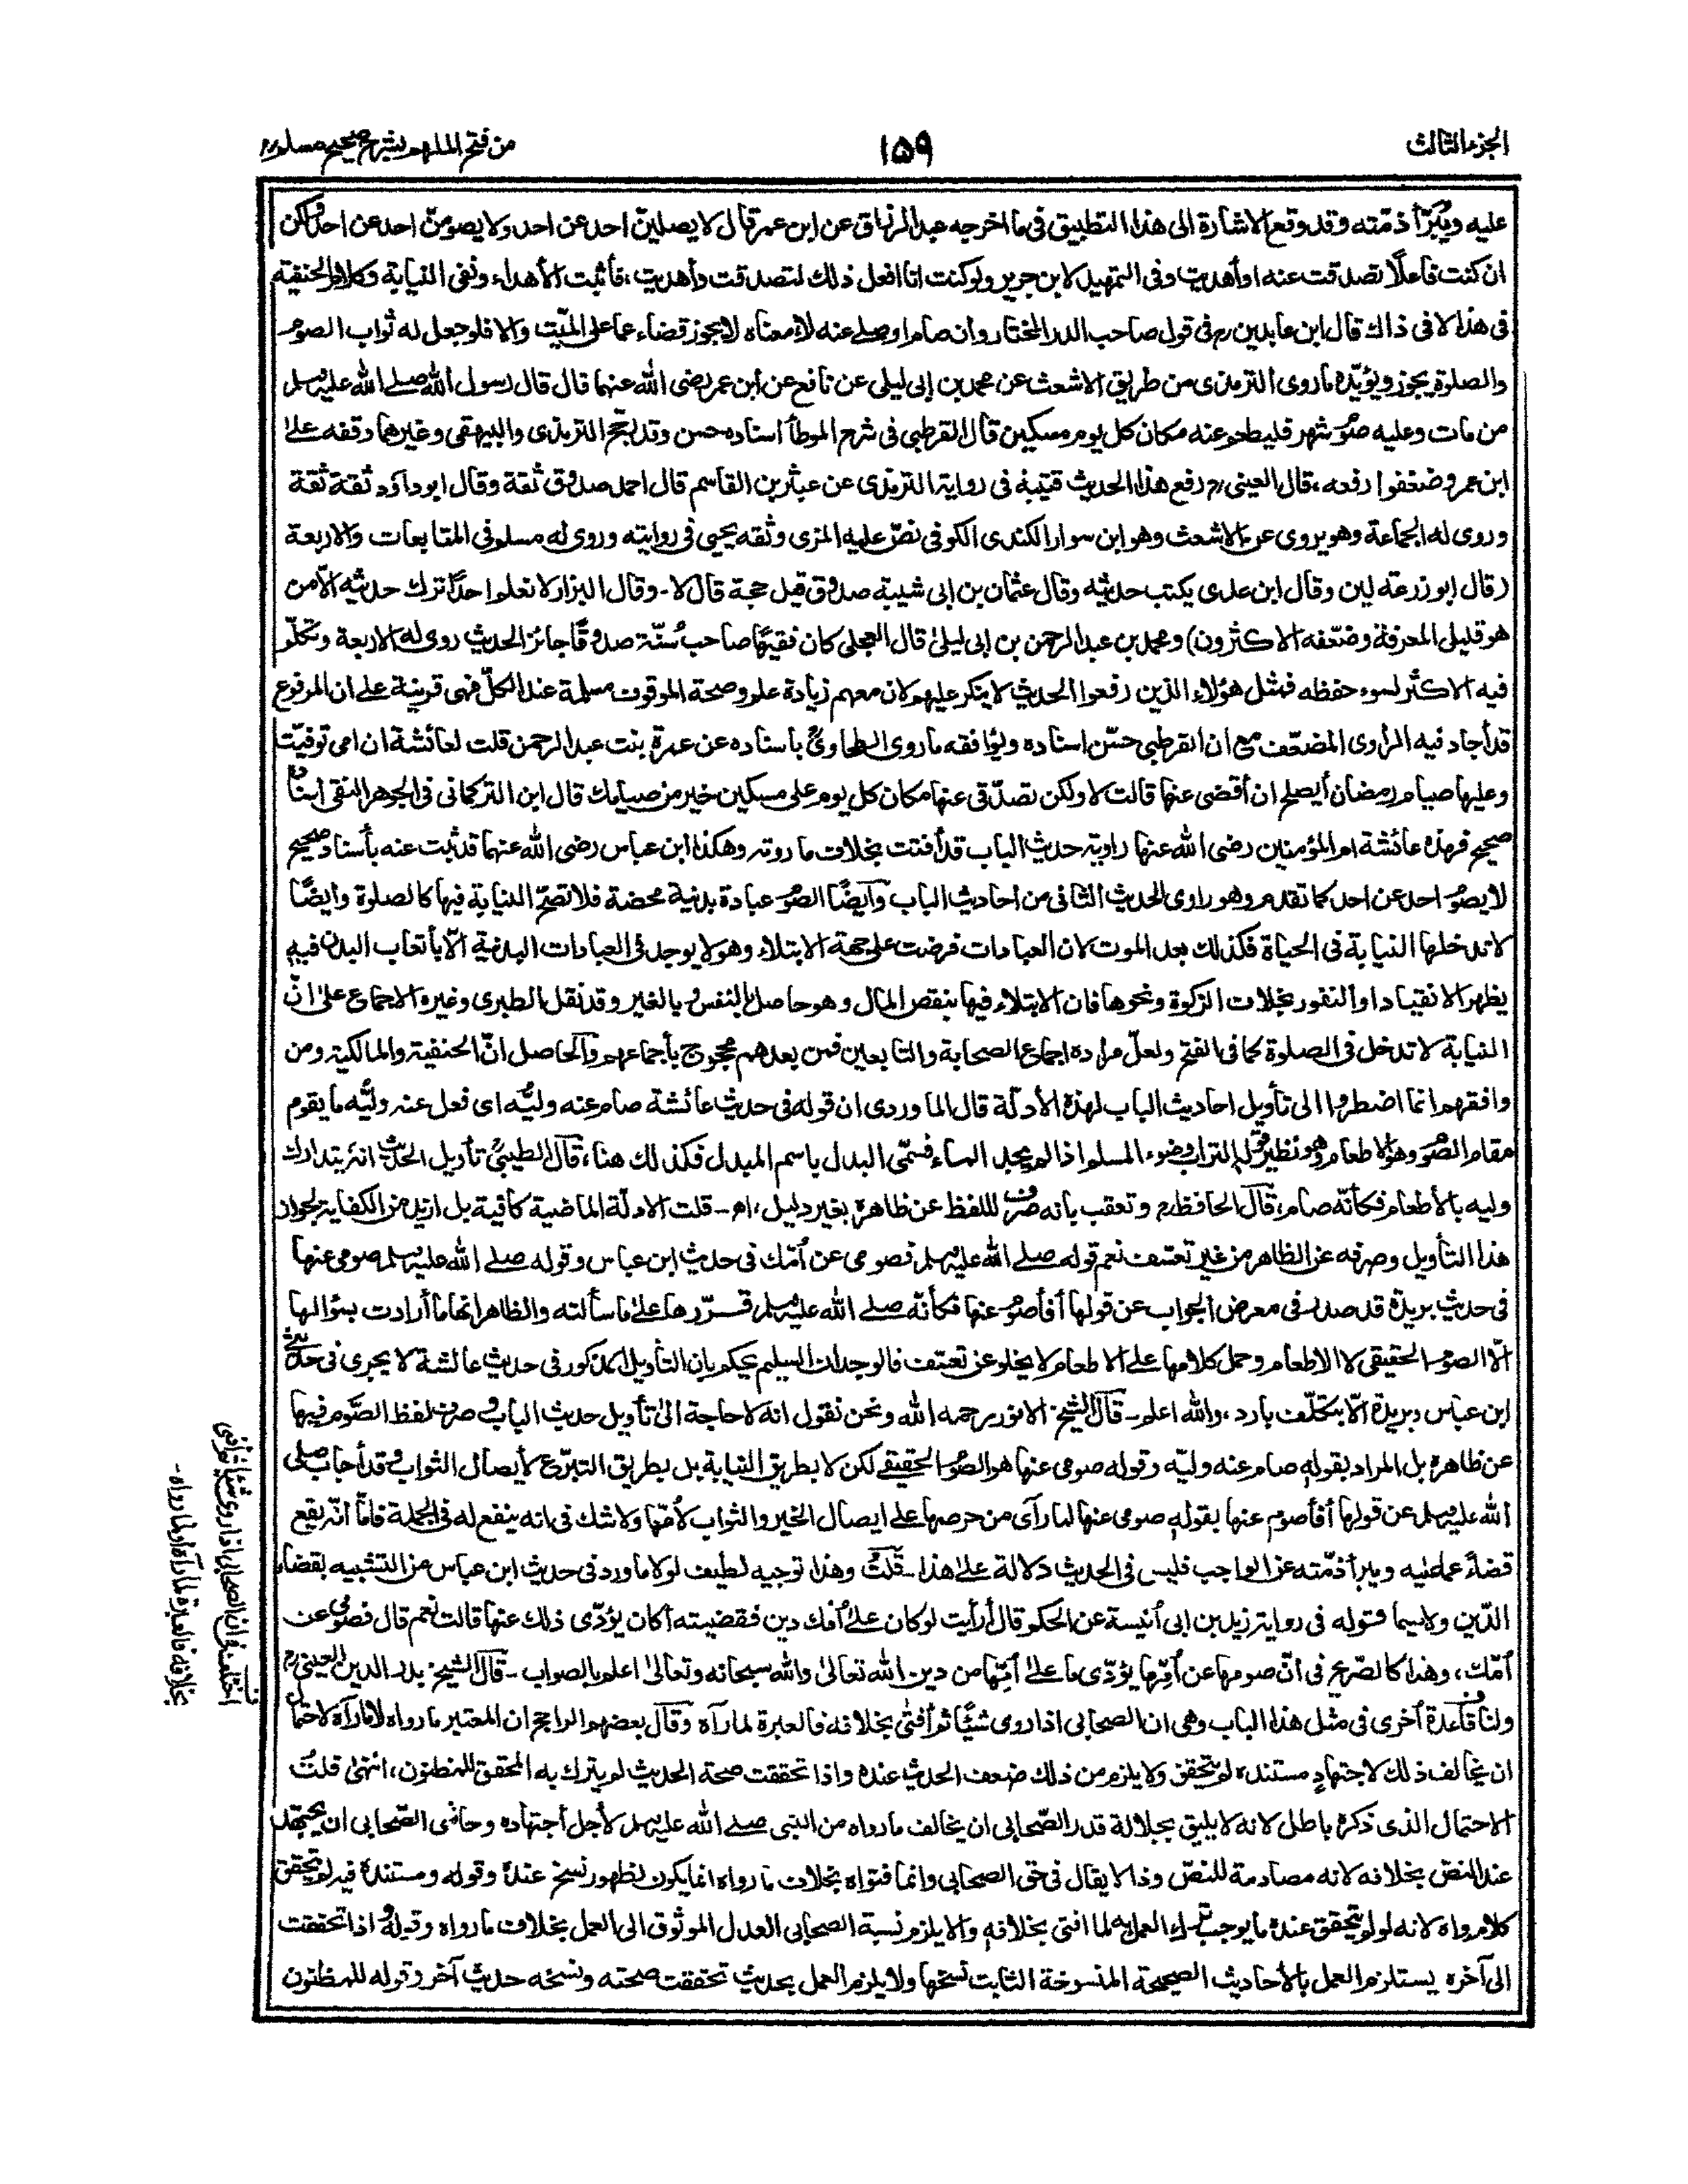 الجزء الثالث
١٥٩
من فتح الملهم بشرح صحيح مسلم
عليه ويُبَرّأ ذمّته وقد وقع الاشارة الى هذا التطبيق فى ما اخرجه عبد الرزاق عن ابن عمر قال لا يصلينّ احد عن احد ولا يصومنّ احد عن احد ولكن
ان كنت فاعلًا تصدقت عنه او أهديت وفى التمهيد لابن جرير ولو كنت انا افعل ذلك لتصدقت وأهديت، فأثبت الأهداء ونفى النيابة وكلام الحنفية
فى هذا لا فى ذاك قال ابن عابدين رم فى قول صاحب الدر المختار وان صام او صلے عنه لا، معناه لا يجوز قضاء عما على الميّت والا فلو جعل له ثواب الصوم
والصلوة يجوز ويؤيّده ما روى الترمذى من طريق الاشعث عن محمد بن ابى ليلى عن نافع عن ابن عمر رضى الله عنهما قال قال رسول الله صلے الله عليه وسلم
من مات وعليه صوم شهر فليطعم عنه مكان كل يوم مسكين قال القرطبى فى شرح الموطأ اسناده حسن وقد رجّح الترمذى والبيهقى وغيرهما وقفه علے
ابن عمر وضعّفوا رفعه، قال العينى رم رفع هذا الحديث قتيبة فى رواية الترمذى عن عبثر بن القاسم قال احمد صدوق ثقة وقال ابو داؤد ثقة ثقة
وروى له الجماعة وهو يروى عن الاشعث وهو ابن سوار الكندى الكوفى نصّ عليه المزى وثقه يحيى فى روايته وروى له مسلم فى المتابعات والاربعة
رقال ابو زرعة لين وقال ابن عدى يكتب حديثه وقال عثمان بن ابى شيبة صدوق قيل حجة قال لا ـ وقال البزار لا نعلم احدًا ترك حديثه الّا من
هو قليل المعرفة وضعّفه الاكثرون) ومحمد بن عبد الرحمن بن ابى ليلى قال العجلى كان فقيهًا صاحب سُنّة صدوقًا جائز الحديث روى له الاربعة وتكلّم
فيه الاكثر لسوء حفظه فمثل هؤلاء الذين رفعوا الحديث لا ينكر عليهم لان معهم زيادة علم وصحة الموقوف مسلمة عند الكلّ فهى قرينة علے ان المرفوع
قد أجاد فيه الراوى المضعّف مع ان القرطبى حسّن اسناده ويوافقه ما روى الطحاوىّ باسناده عن عمرة بنت عبد الرحمن قلت لعائشة ان امى توفيّت
وعليها صيام رمضان أيصلح ان أقضى عنها قالت لا ولكن تصدّقى عنها مكان كل يوم على مسكين خير من صيامك قال ابن التركمانى فى الجوهر النقى اسناده
صحيح فهذه عائشة ام المؤمنين رضى الله عنها راوية حديث الباب قد أفتت بخلاف ما روته وهكذا ابن عباس رضى الله عنهما قد ثبت عنه بأسناد صحيح
لا يصوم احد عن احد كما تقدم وهو راوى الحديث الثانى من احاديث الباب وأيضًا الصوم عبادة بدنية محضة فلا تصحّ النيابة فيها كالصلوة وايضًا
لا تدخلها النيابة فى الحياة فكذلك بعد الموت لان العبادات فرضت على جهة الابتلاء وهو لا يوجد فى العبادات البدنية الّا بأتعاب البدن فبه
يظهر الانقياد او النفور بخلاف الزكوة ونحوها فان الابتلاء فيها بنقص المال وهو حاصل بالنفس وبالغير وقد نقل الطبرى وغيره الاجماع علے انّ
النيابة لا تدخل فى الصلوة كما فى الفتح ولعلّ مراده اجماع الصحابة والتابعين فمن بعدهم محجوج بأجماعهم والحاصل انّ الحنفية والمالكية ومن
وافقهم انما اضطروا الى تأويل احاديث الباب لهذه الأدلّة قال الماوردى ان قوله فى حديث عائشة صام عنه وليّه اى فعل عنه وليّه ما يقوم
مقام الصوم وهو الاطعام وهو نظير قوله التراب وضوء المسلم اذا لم يجد الماء فسمّى البدل باسم المبدل فكذلك هنا، قال الطيبىّ تأويل الحديث انه يتدارك
وليه بالأطعام فكأنّه صام، قال الحافظ رم وتعقب بأنه صرف للفظ عن ظاهره بغير دليل، اه ـ قلت الادلّة الماضية كافية بل ازيد من الكفاية لجواز
هذا التأويل وصرفه عن الظاهر من غير تعسّف نعم قوله صلے الله عليه وسلم فصومى عن اُمّك فى حديث ابن عباس وقوله صلے الله عليه وسلم صومى عنها
فى حديث بريدة قد صدر فى معرض الجواب عن قولها أفأصوم عنها فكأنّه صلے الله عليه وسلم قرّرها علے ما سألته والظاهر انها ما أرادت بسؤالها
الّا الصوم الحقيقى لا الاطعام وحمل كلامها علے الاطعام لا يخلو عن تعسّف فالوجدان السليم يحكم بان التأويل المذكور فى حديث عائشة لا يجرى فى حديثى
ابن عباس وبريدة الّا بتكلّف بارد، والله اعلم ـ قال الشيخ الانور رحمه الله ونحن نقول انه لا حاجة الى تأويل حديث الباب وصرف لفظ الصّوم فيها
عن ظاهره بل المراد بقوله صام عنه وليّه وقوله صومى عنها هو الصوم الحقيقے لكن لا بطريق النيابة بل بطريق التبرّع لأيصال الثواب وقد أجاب صلى
الله عليه وسلم عن قولها أفأصوم عنها بقوله صومى عنها لما رآى من حرصها علے ايصال الخير والثواب لأمّها ولا شك فى انه ينفع له فى الجملة فأمّا انّه يقع
قضاءً عما عليه ويبرأ ذمّته عن الواجب فليس فى الحديث دلالة علے هذا ـ قلت وهذا توجيه لطيف لولا ما ورد فى حديث ابن عباس من التشبيه بقضاء
الدّين ولا سيما قوله فى رواية زيد بن ابى اُنيسة عن الحكم قال أرأيت لو كان علے اُمّك دين فقضيته أكان يؤدّى ذلك عنها قالت نعم قال فصومى عن
اُمّك، وهذا كالصّريح فى انّ صومها عن اُمّها يؤدّى ما علے اُمّها من دين الله تعالىٰ والله سبحانه وتعالىٰ اعلم بالصواب ـ قال الشيخ بدر الدين العينى رم
ولنا قاعدة اُخرى فى مثل هذا الباب وهى ان الصحابى اذا روى شيئًا ثم أفتى بخلافه فالعبرة لما رآه وقال بعضهم الراجح ان المعتبر ما رواه لا ما رآه لاحتمال
ان يخالف ذلك لاجتهادٍ مستنده لم يتحقق ولا يلزم من ذلك ضعف الحديث عنده واذا تحققت صحة الحديث لم يترك به المحقق للمظنون، انتهى قلتُ
الاحتمال الذى ذكره باطل لانه لا يليق بجلالة قدر الصّحابى ان يخالف ما رواه من النبى صلے الله عليه وسلم لأجل أجتهاده وحاشى الصّحابى ان يجتهد
عند النصّ بخلافه لانه مصادمة للنصّ وذا لا يقال فى حق الصحابى وانما فتواه بخلاف ما رواه انما يكون لظهور نسخ عنده وقوله ومستنده فيه لم يتحقق
كلام واه لانه لو لم يتحقق عنده ما يوجب ترك العمل به لما افتى بخلافه والا يلزم نسبة الصحابى العدل الموثوق الى العمل بخلاف ما رواه وقوله واذا تحققت
الى آخره يستلزم العمل بالأحاديث الصحيحة المنسوخة الثابت نسخها ولا يلزم العمل بحديث تحققت صحته ونسخه حديث آخر وقوله للمظنون
اختلف فى ان الصحابى اذا روى شيئا ثم أفتى
بخلافه فالعبرة لما رآه او لما رواه ـ